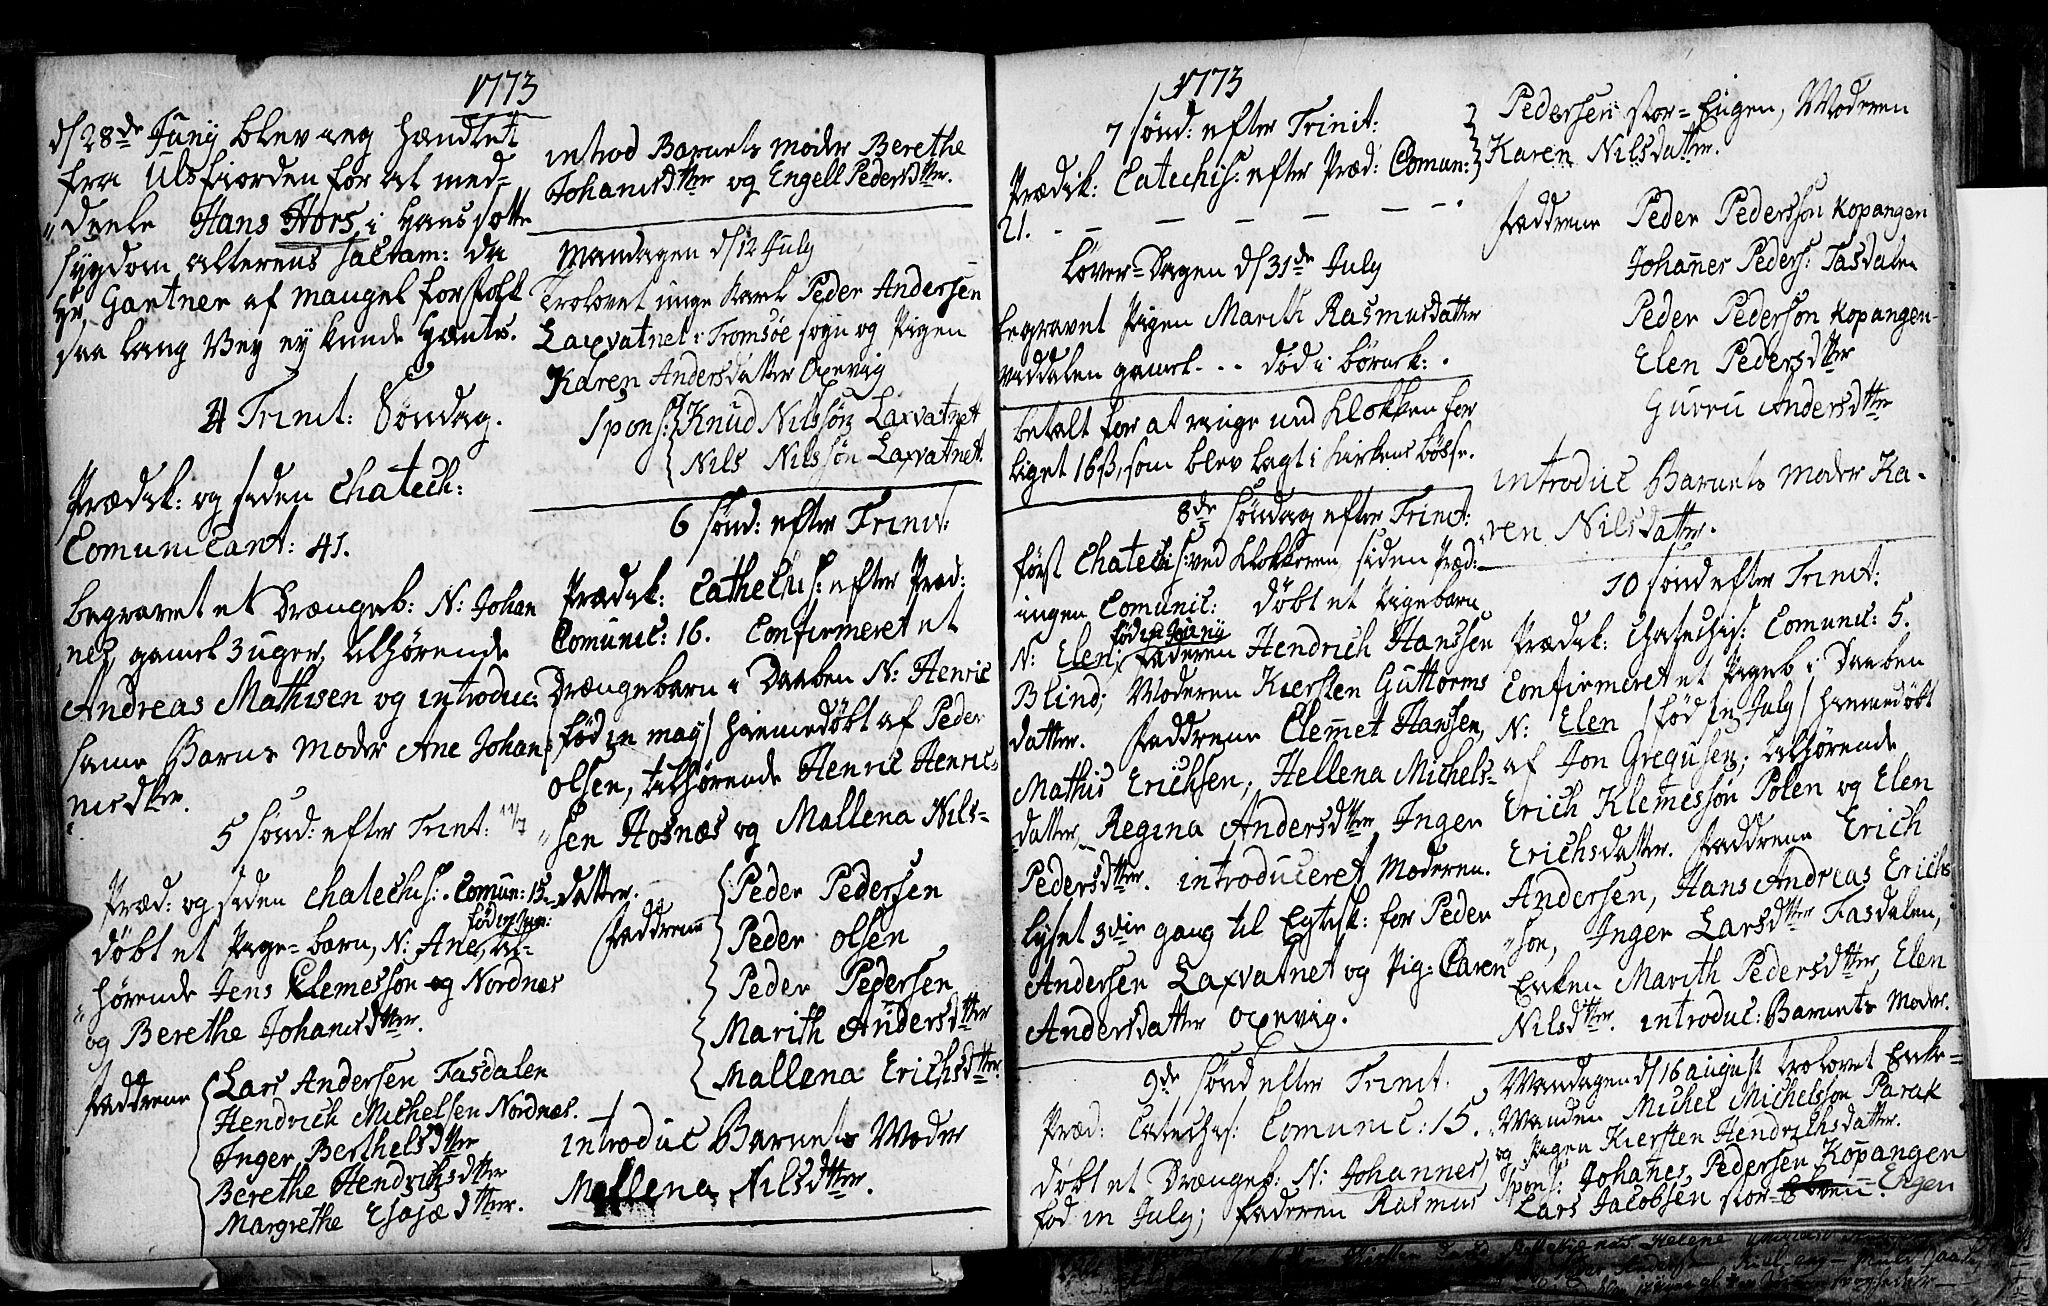 1773
d/ 28de Juny blev ieg hændtet
fra Ulsfiorden for at med-
deele Hans Hors i Hans sotte
sygdom alterens Sacram: da
Hr. Gartner af mangel for folk
saa lang Vey ey kunde Hæntes.
4 Trinit: Søndag.
Prædik: og siden Chatech:
Comunicant: 41.
begravet et Drængeb: N: Johan
nes, gamel 3 uger, tilhørende
Andreas Mathisen og introduc:
samme Barns Moder Ane Johan
nesdtter.
5 Sønd: efter Trint: 11/7
Præd: og siden Chatechis: Comun: 15.
døbt et Pige-barn, N: Ane, fød in Jun: til-
hørende Jens Clemesson og Nordnæs
og Berethe Johanisdtter.
Faddrene Lars Andersen Fasdalen
Hendrich Michelsen Nordnæs.
Inger Berthelsdtter
Berethe Hendrichsdtter
Margrethe Esaiædtter.
introd Barnets moder Berethe
Johanisdtter og Engell Pedersdtter.
Mandagen d/ 12 July
Trolovet unge Karl Peder Andersen
Laxvatnet i Tromsøe sogn og Pigen
Karen Andersdatter Oxevig
Spons: Knud Nilssøn Laxvatnet
Nils Nilssøn Laxvatnet.
6 Sønd: efter Trinit:
Prædik: Cathechis: efter Præd:
Comunic: 16. Confirmeret et
Drængebarn i Daaben N: Henric
/fød in may/ hiemedøbt af Peder
Olsen, tilhørende Henric Henric-
sen Hosnæs og Mallena Nils-
datter.
Faddrene Peder Pedersen
Peder Olsen
Peder Pedersen
Marith Andersdtter
Mallena Erichsdtter.
introduc Barnets Moder
Mallena Nilsdtter.
1773
7 Sønd: efter Trinit:
Prædik: Catechis: efter Præd: Comun:
21.
Løver-Dagen d/ 31de July
begravet Pigen Marith Rasmusdatter
gamel - - - død i
betalt for at ringe med Klokken for
Liget 16 ß, som blev lagt i Kirkens bøsse.
8de Søndag efter Trinit:
først Chatechis: ved Klokkeren, siden Præd:
ingen Comunic: døbt et Pigebarn
N: Elen, fød in Juny Faderen Hendrich Hanssen
Blind; Moderen Kiersten Guttorms
datter. Faddrene Clemet Hansen,
Mathis Erichsen, Hellena Michels-
datter, Regina Andersdtter, Inger
Pedersdtter. introduceret Moderen.
Lyset 3die gang til Egtesk: for Peder
Andersen Laxvatnet og Pig: Caren
Andersdatter Oxevig.
9de Sønd efter Trinit.
Præd: Catechis: Comunic: 15.
døbt et Drængeb: N: Johannes,
fød in July; Faderen Rasmus
Pedersen stor-Eigen, Moderen
Karen Nilsdatter.
Faddrene Peder Pedersson Kopangen
Johannes Peders: Fasdalen
Peder Pederson Kopangen
Elen Pedersdtter
Gurru Andersdtter
introduc Barnets Moder Ka-
ren Nilsdatter.
10 Sønd efter Trinit:
Prædik: Chatechis: Comunic: 5.
Confirmeret et Pigeb i Daaben
N: Elen /fød in July/ hiemedøbt
af Jon Gregusen; tilhørende
Erich Klemesson Polen og Elen
Erichsdatter. Faddrene Erich
Andersen, Hans Andreas Erich-
son, Inger Larsdtter Fasdalen,
Enken Marith Pedersdtter, Elen
Nilsdtter. introduc: Barnets Moder.
Mandagen d/ 16 august trolovet Enke-
Manden Michel Michelsson Parak
og Pigen Kiersten Hendrichsdatter.
Spons: Johanes Pedersen Kopangen
Lars Jacobsen stor- Eigen